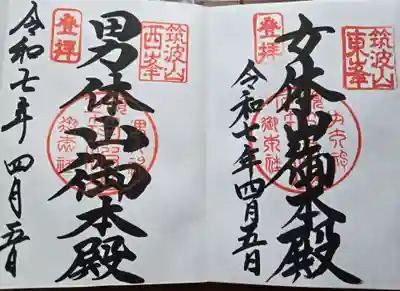 筑波山
東峯
登拝
女体山御本殿
令和七年四月五日
筑波山
西峯
登拝
男体山御本殿
令和七年四月五日